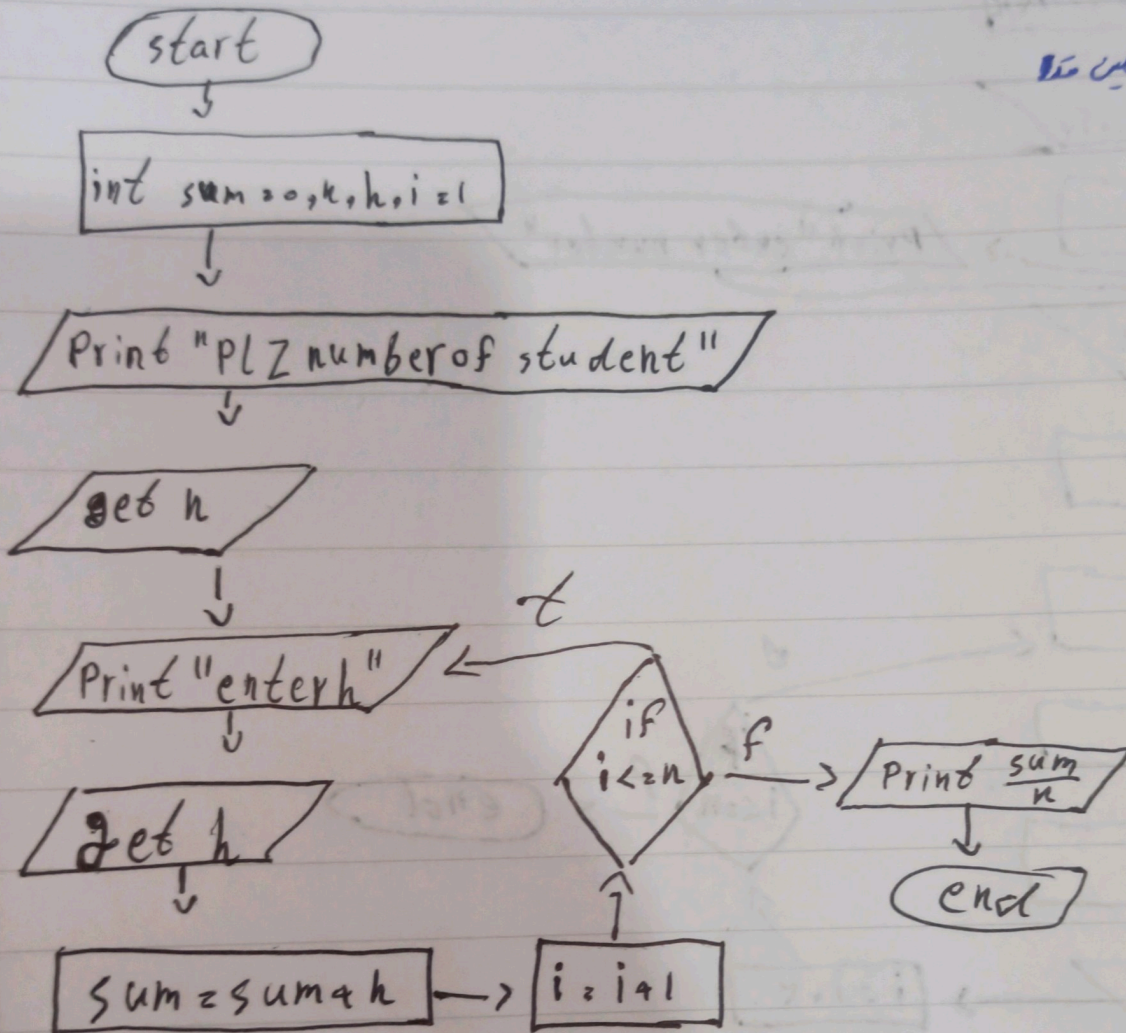 start
int sum=0,n,h,i=1
Print "PLZ number of student"
get n
Print "enter h"
get h
sum=sum+h
i=i+1
if
i<=n
t
f
Print sum/n
end